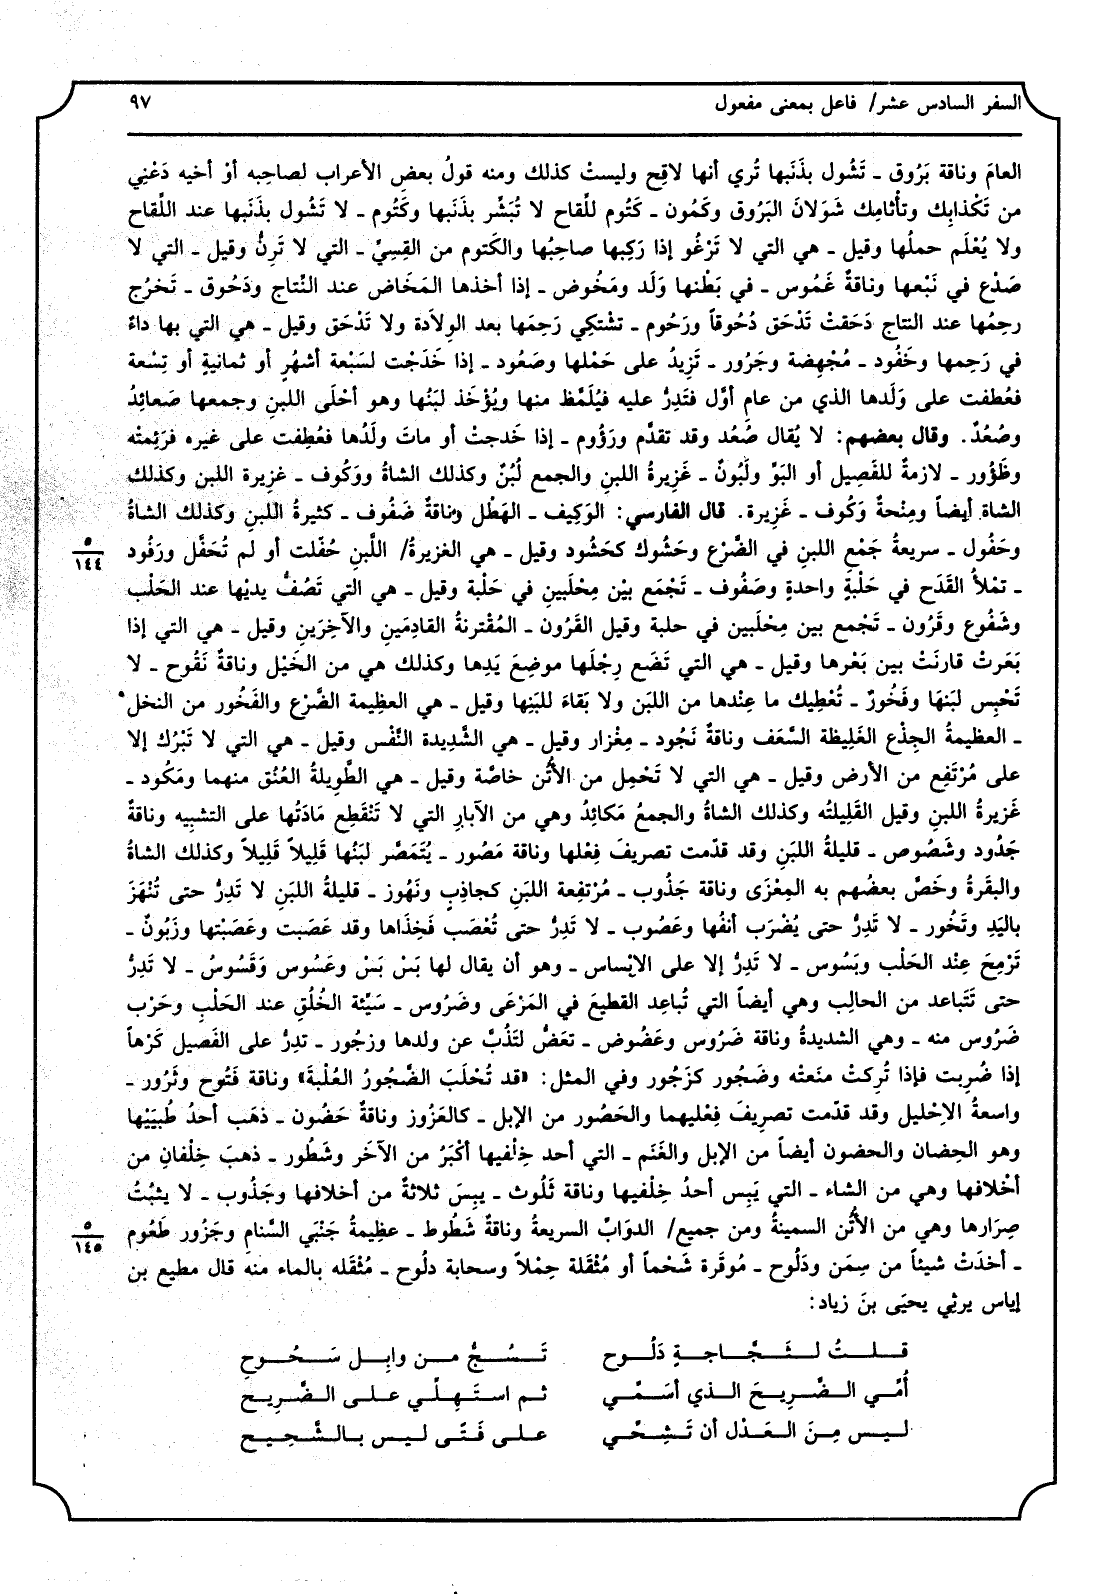 السفر السادس عشر/ فاعل بمعنى مفعول ٩٧
العامَ وناقة بَرُوق ـ تَشُول بذَنَبها تُري أنها لاقِح وليستْ كذلك ومنه قولُ بعضِ الأعراب لصاحِبه أوْ أخيه دَعْنِي
من تَكْذابِك وتأثامِك شَوَلانَ البَرُوق وكَمُون ـ كَتُوم للَّقاح لا تُبَشّر بذَنَبها وكَتُوم ـ لا تَشُول بذَنَبها عند اللَّقاح
ولا يُعْلَم حملُها وقيل ـ هي التي لا تَرْغُو إذا رَكِبها صاحِبُها والكَتوم من القِسِيِّ ـ التي لا تَرِنُّ وقيل ـ التي لا
صَدْع في نَبْعها وناقةٌ غَمُوس ـ في بَطْنها وَلَد ومَخُوض ـ إذا أخذها المَخَاض عند النّتاج ودَحُوق ـ تَخرُج
رحِمُها عند النتاج دَحَقتْ تَدْحَق دُحُوقاً ورَحُوم ـ تشْتكِي رَحِمَها بعد الوِلاَدة ولا تَدْحَق وقيل ـ هي التي بها داءٌ
في رَحِمها وخَفُود ـ مُجْهِضة وجَرُور ـ تَزِيدُ على حَمْلها وصَعُود ـ إذا خَدَجْت لسَبْعة أشهُرٍ أو ثمانيةٍ أو تِسْعة
فعُطفت على وَلَدها الذي من عامِ أوَّل فتَدِرُّ عليه فيُلَمَّظ منها ويُؤْخَذ لبَنُها وهو أحْلَى اللبنِ وجمعها صَعائِدُ
وصُعُدٌ. وقال بعضهم: لا يُقال صُعُد وقد تقدَّم ورَؤُوم ـ إذا خَدجتْ أو ماتَ ولَدُها فعُطِفت على غيره فرَئِمتْه
وظَؤُور ـ لازمةٌ للفَصِيل أو البَوِّ ولَبُونٌ ـ غَزِيرةُ اللبنِ والجمع لُبُنٌ وكذلك الشاةُ ووَكُوف ـ غزيرة اللبن وكذلك
الشاة أيضاً ومِنْحةٌ وَكُوف ـ غَزِيرة. قال الفارسي: الوَكِيف ـ الهَطْل وناقةٌ ضَفُوف ـ كثيرةُ اللبنِ وكذلك الشاةُ
وحَفُول ـ سريعةُ جَمْعِ اللبنِ في الضَّرْع وحَشُوك كحَشُود وقيل ـ هي الغزيرةُ/ اللَّبنِ حُفّلت أو لم تُحَفَّل ورَفُود
٥
١٤٤
ـ تمْلأُ القَدَح في حَلْبةٍ واحدةٍ وصَفُوف ـ تَجْمَع بيْن مِحْلَبينِ في حَلْبة وقيل ـ هي التي تَصُفُّ يديْها عند الحَلْب
وشَفُوع وقَرُون ـ تَجْمَع بين مِحْلَبين في حلبة وقيل القَرُون ـ المُقْترنةُ القادِمَينِ والآخِرَينِ وقيل ـ هي التي إذا
بَعَرتْ قارنَتْ بين بَعْرها وقيل ـ هي التي تَضَع رِجْلَها موضِعَ يَدِها وكذلك هي من الخَيْل وناقةٌ نَقُوح ـ لا
تَحْبِس لبَنهَا وفَخُورٌ ـ تُعْطِيك ما عِنْدها من اللبَن ولا بَقاءَ للبَنِها وقيل ـ هي العظِيمة الضَّرْع والفَخُور من النخل
ـ العظيمةُ الجِذْع الغَلِيظة السَّعَف وناقةٌ نَجُود ـ مِغْزار وقيل ـ هي الشَّدِيدة النَّفْس وقيل ـ هي التي لا تَبْرُك إلا
على مُرْتَفِع من الأرض وقيل ـ هي التي لا تَحْمِل من الأُتُن خاصَّة وقيل ـ هي الطَّوِيلةُ العُنُق منهما ومَكُود ـ
غَزيرةُ اللبنِ وقيل القَلِيلتُه وكذلك الشاةُ والجمعُ مَكائِدُ وهي من الآبارِ التي لا تَنْقَطِع مَادَتُها على التشبِيه وناقةٌ
جَدُود وشَصُوص ـ قليلةُ اللبَنِ وقد قدّمت تصريفَ فِعْلها وناقة مَصُور ـ يُتَمَصَّر لبَنُها قَلِيلاً قَلِيلاً وكذلك الشاةُ
والبقَرةُ وخَصَّ بعضُهم به المِعْزَى وناقة جَذُوب ـ مُرْتفِعة اللبَنِ كجاذِبٍ ونَهُوز ـ قليلةُ اللبَنِ لا تَدِرُّ حتى تُنْهَزَ
باليَدِ ونَخُور ـ لا تَدِرُّ حتى يُضْرَب أنفُها وعَصُوب ـ لا تَدِرُّ حتى تُعْصَب فَخِذَاها وقد عَصَبت وعَصَبْتها وزَبُونٌ ـ
تَرْمِحَ عِنْد الحَلْب وبَسُوس ـ لا تَدِرُّ إلا على الاِبْساس ـ وهو أن يقال لها بَسْ بَسْ وعَسُوس وَقَسُوسُ ـ لا تَدِرُّ
حتى تَتَباعد من الحالِب وهي أيضاً التي تُباعِد القطيعَ في المَرْعَى وضَرُوس ـ سَيِّئة الخُلُقِ عند الحَلْبِ وحَرْب
ضَرُوس منه ـ وهي الشديدةُ وناقة ضَرُوس وعَضُوض ـ تعَضُّ لتَذُبَّ عن ولدها وزجُور ـ تدِرُّ على الفَصيل كَرْهاً
إذا ضُرِبت فإذا تُرِكتْ منَعتْه وضَجُور كزَجُور وفي المثل: «قد تُحْلَبَ الضَّجُورُ العُلْبةَ» وناقة فَتُوح وثَرُور ـ
واسعةُ الاِحْليل وقد قدّمت تصرِيفَ فِعْليهما والحَصُور من الإبل ـ كالعَزُوز وناقةٌ حَضُون ـ ذهَب أحدُ طُبيَيْها
وهو الحِضان والحضون أيضاً من الإبل والغَنَم ـ التي أحد خِلْفيها أكْبَرُ من الآخَر وشَطُور ـ ذهبَ خِلْفانِ من
أخْلافها وهي من الشاء ـ التي يَبِس أحدُ خِلْفيها وناقة ثَلُوث ـ يبِسَ ثلاثةٌ من أخلافها وجَذُوب ـ لا يثبُتُ
صِرَارها وهي من الأُتُن السمينةُ ومن جميع/ الدوَابِّ السريعةُ وناقةٌ شَطُوط ـ عظِيمةُ جَنْبَي السَّنامِ وجَزُور طَعُوم
٥
١٤٥
ـ أخذَتْ شيئاً من سِمَن ودَلُوح ـ مُوقَرة شَحْماً أو مُثْقَلة حِمْلاً وسحابة دلُوح ـ مُثْقَله بالماء منه قال مطيع بن
إياس يرثِي يحيَى بنَ زياد:
قلتُ لثَجَّاجةٍ دَلُوح تَسُحُّ من وابِل سَحُوحِ
أُمِّي الضَّرِيحَ الذي أسَمِّي ثم استَهِلِّي على الضَّرِيحِ
ليس مِنَ العَدْل أن تَشِحِّي على فَتًى ليس بالشَّحِيحِ